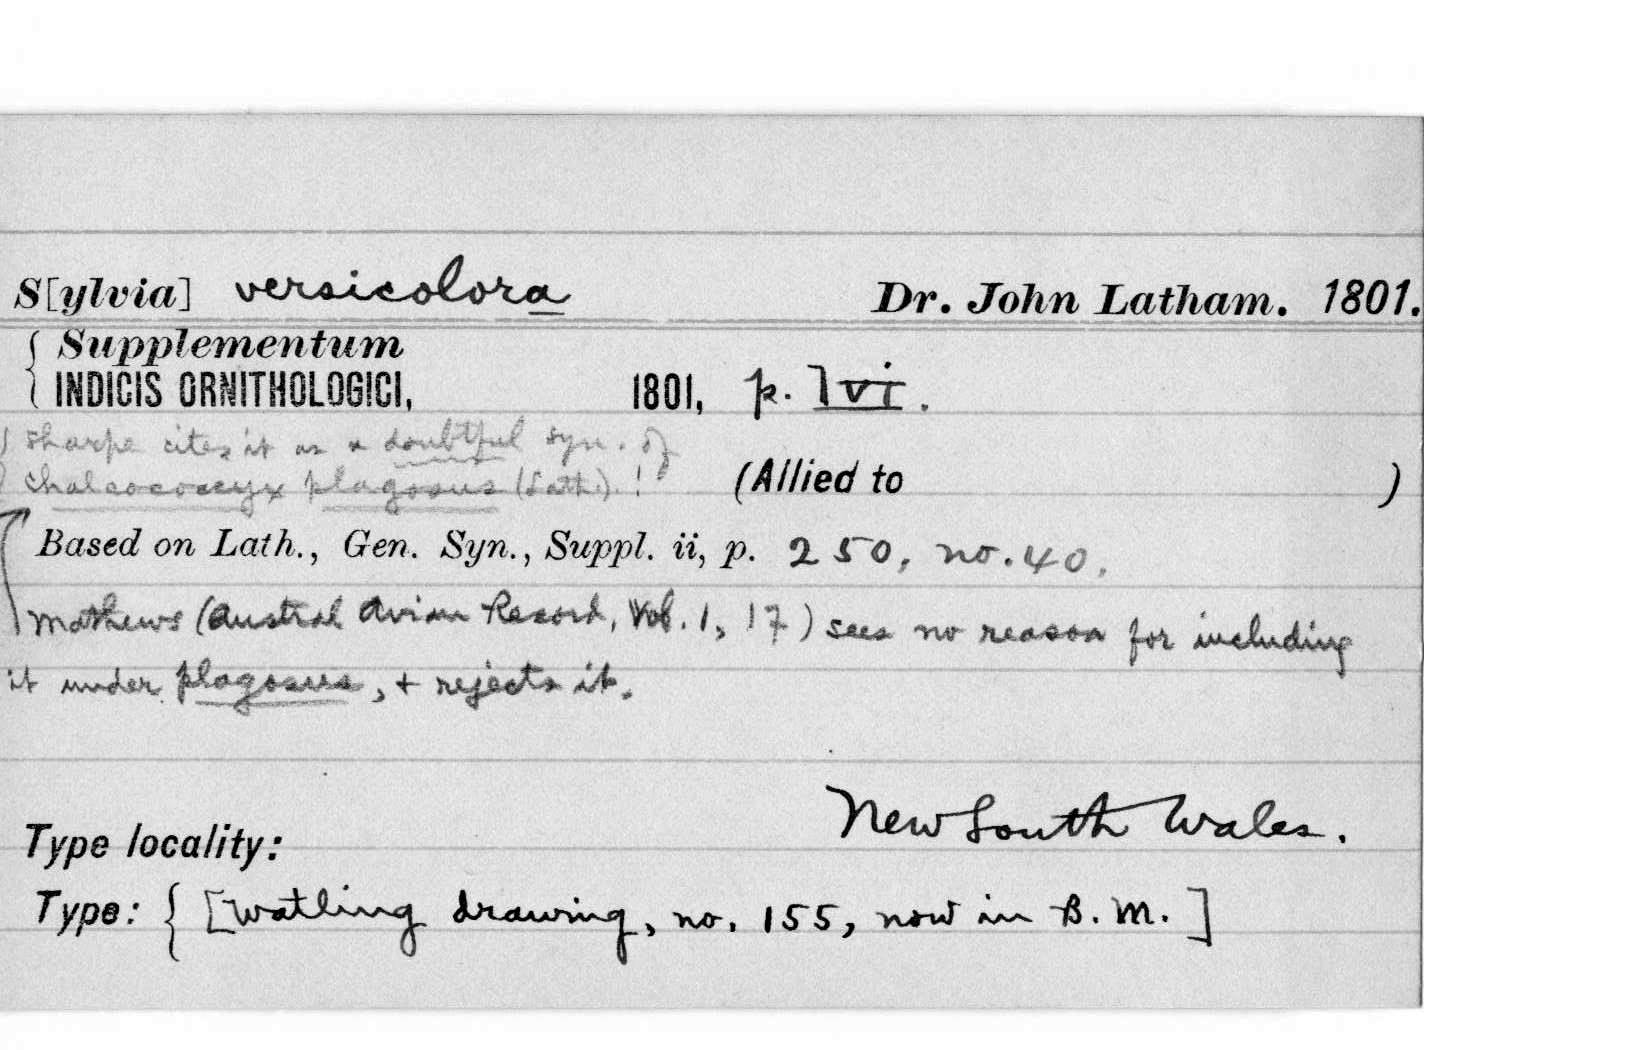 S[ylvia] versicolora Dr. John Latham. 1801.
Supplementum
INDICIS ORNITHOLOGICI, 1801, p. lvi.
Sharpe cites it as a doubtful syn. of
Chalcococcyx plagosus (Lath.). !
(Allied to )
Based on Lath., Gen. Syn., Suppl. ii, p. 250, no. 40.
Mathews (Austral Avian Record, Vol. 1, 17) sees no reason for including
it under plagosus, + rejects it.
New South Wales.
Type locality:
Type: { [Watling drawing, no. 155, now in B. M.]